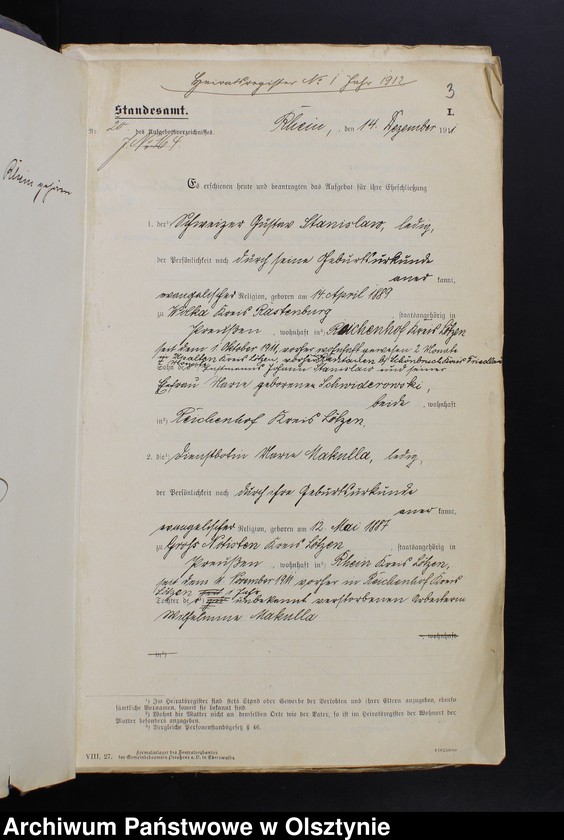 Heiratsregister No 1 Jahr 1912
3
Standesamt. I.
Nr. 20 des Aufgebotsverzeichnisses. Rhein, den 14. Dezember 1911
J. No 164
Es erschienen heute und beantragten das Aufgebot für ihre Eheschließung
1. der¹) Schweizer Gustav Stanislaw, ledig,
der Persönlichkeit nach durch seine Geburtsurkunde
aner kannt,
evangelischer Religion, geboren am 14. April 1889
zu Wolka Kreis Rastenburg, staatsangehörig in
Preußen, wohnhaft in²) Reichenhof Kreis Lötzen
seit dem 1 Oktober 1911, vorher wohnhaft gewesen 2 Monate
Kreis Lötzen, vorher
Sohn des Instmanns Johann Stanislaw und seiner
Ehefrau Marie geborenen Schwiderowski,
beide, wohnhaft
in²) Reichenhof Kreis Lötzen.
2. die¹) Dienstbotin Marie Makulla, ledig,
der Persönlichkeit nach durch ihre Geburtsurkunde
aner kannt,
evangelischer Religion, geboren am 12. Mai 1887
zu Gross Notisten Kreis Lötzen, staatsangehörig in
Preußen, wohnhaft in²) Rhein Kreis Lötzen,
seit dem 11. November 1911 vorher in Reichenhof Kreis
Lötzen 1 Jahr
Tochter der unbekannt verstorbenen Arbeiterin
Wilhelmine Makulla
, wohnhaft
in²)
¹) Im Heiratsregister sind stets Stand oder Gewerbe der Verlobten und ihrer Eltern anzugeben, ebenso
sämtliche Vornamen, soweit sie bekannt sind.
²) Wohnt die Mutter nicht an demselben Orte wie der Vater, so ist im Heiratsregister der Wohnort der
Mutter besonders anzugeben.
³) Vergleiche Personenstandsgesetz § 46.
VIII. 27. Formularlager des Zentralverbandes
der Gemeindebeamten Preußens e. V. in Eberswalde.
Archiwum Państwowe w Olsztynie